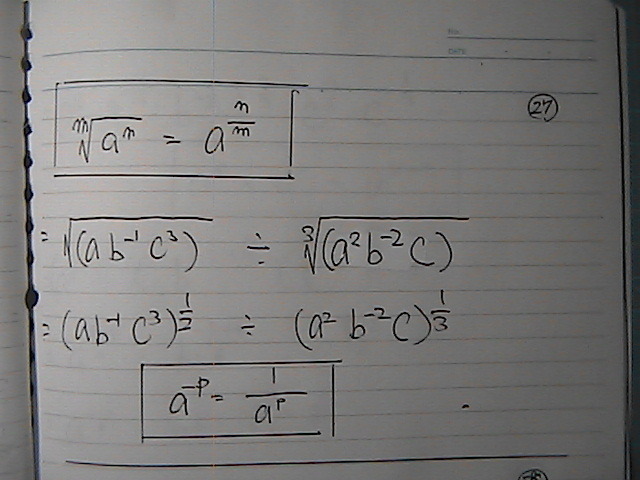 No.
DATE
27
ᵐ√aⁿ = a^(n/m)
= √(ab⁻¹c³) ÷ ³√(a²b⁻²c)
= (ab⁻¹c³)^(1/2) ÷ (a²b⁻²c)^(1/3)
a⁻ᵖ = 1/aᵖ